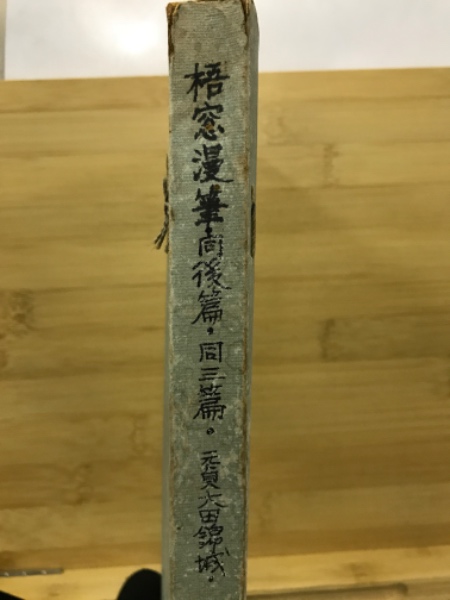 梧窓漫筆同後篇。同三篇。元貞大田錦城。